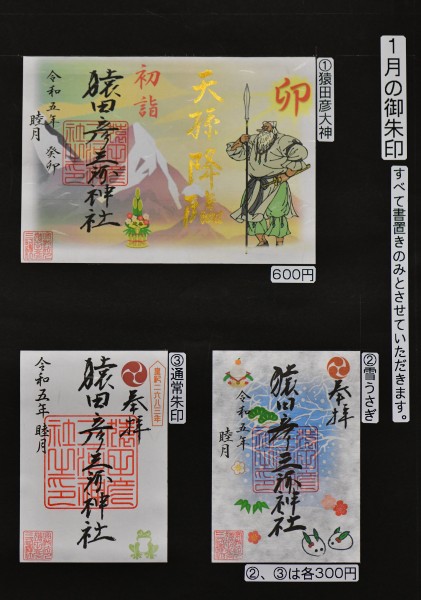 1月の御朱印
すべて書置きのみとさせていただきます。
①猿田彦大神
卯
天孫降臨
初詣
猿田彦三河神社
令和五年 癸卯
睦月
600円
②雪うさぎ
奉拝
猿田彦三河神社
令和五年
睦月
③通常朱印
皇紀二六八三年
奉拝
猿田彦三河神社
令和五年 睦月
②、③は各300円